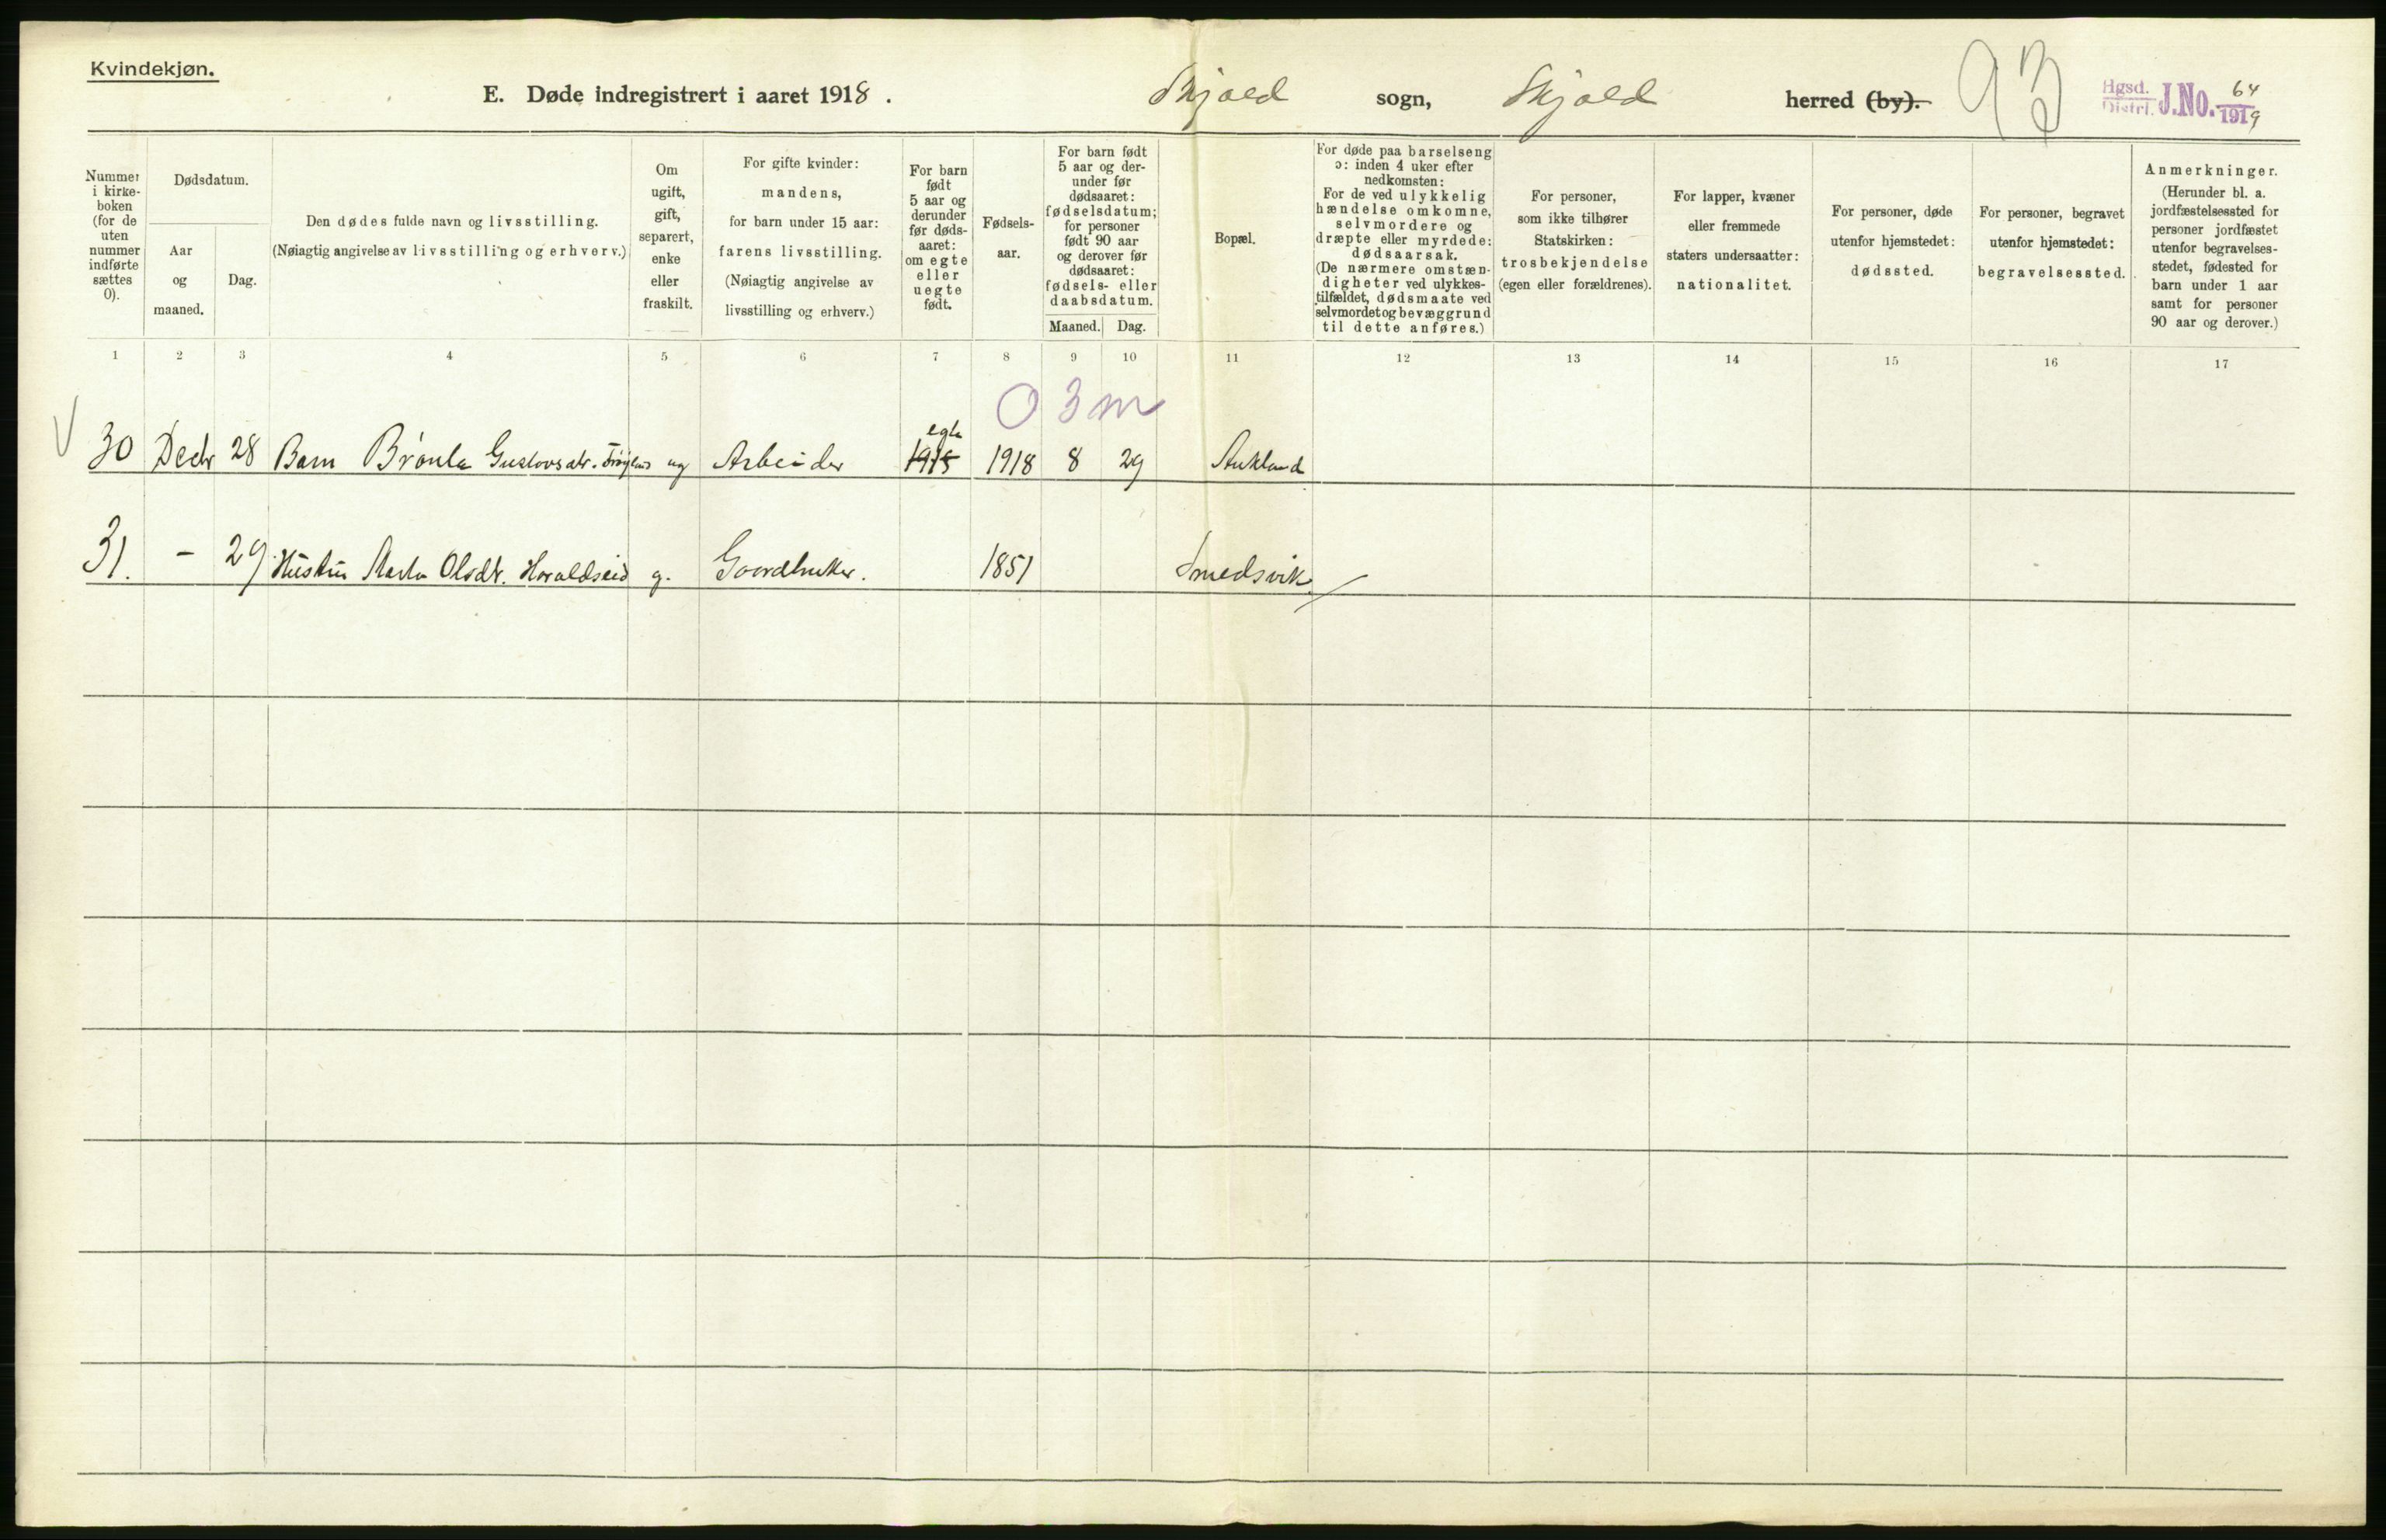 Kvindekjøn.
E. Døde indregistrert i aaret 1918.
Skjold sogn, Skjold herred (by).
93
Hgsd. Distri. J.No. 64/1919
Nummer i kirkeboken (for de uten nummer indførte sættes 0).
Dødsdatum.
Aar og maaned.
Dag.
Den dødes fulde navn og livsstilling.
(Nøiagtig angivelse av livsstilling og erhverv.)
Om ugift, gift, separert, enke eller fraskilt.
For gifte kvinder: mandens, for barn under 15 aar: farens livsstilling. (Nøiagtig angivelse av livsstilling og erhverv.)
For barn født 5 aar og derunder før dødsaaret: om egte eller uegte født.
Fødselsaar.
For barn født 5 aar og derunder før dødsaaret: fødselsdatum; for personer født 90 aar og derover før dødsaaret: fødsels- eller daabsdatum.
Maaned. Dag.
Bopæl.
For døde paa barselseng ɔ: inden 4 uker efter nedkomsten: For de ved ulykkelig hændelse omkomne, selvmordere og dræpte eller myrdede: dødsaarsak. (De nærmere omstændigheter ved ulykkestilfældet, dødsmaate ved selvmordet og bevæggrund til dette anføres.)
For personer, som ikke tilhører Statskirken: trosbekjendelse (egen eller forældrenes).
For lapper, kvæner eller fremmede staters undersaatter: nationalitet.
For personer, døde utenfor hjemstedet: dødssted.
For personer, begravet utenfor hjemstedet: begravelsessted.
Anmerkninger. (Herunder bl. a. jordfæstelsessted for personer jordfæstet utenfor begravelsesstedet, fødested for barn under 1 aar samt for personer 90 aar og derover.)
1 2 3 4 5 6 7 8 9 10 11 12 13 14 15 16 17
0 3 m
egte
30 Decbr 28 Barn Gustavsdtr. ug Arbeider 1918 1918 8 29 Aukland
31. - 29 Hustru Marta Olsdtr. Haraldseid g. Gaardbruker. 1851 Smedsvik